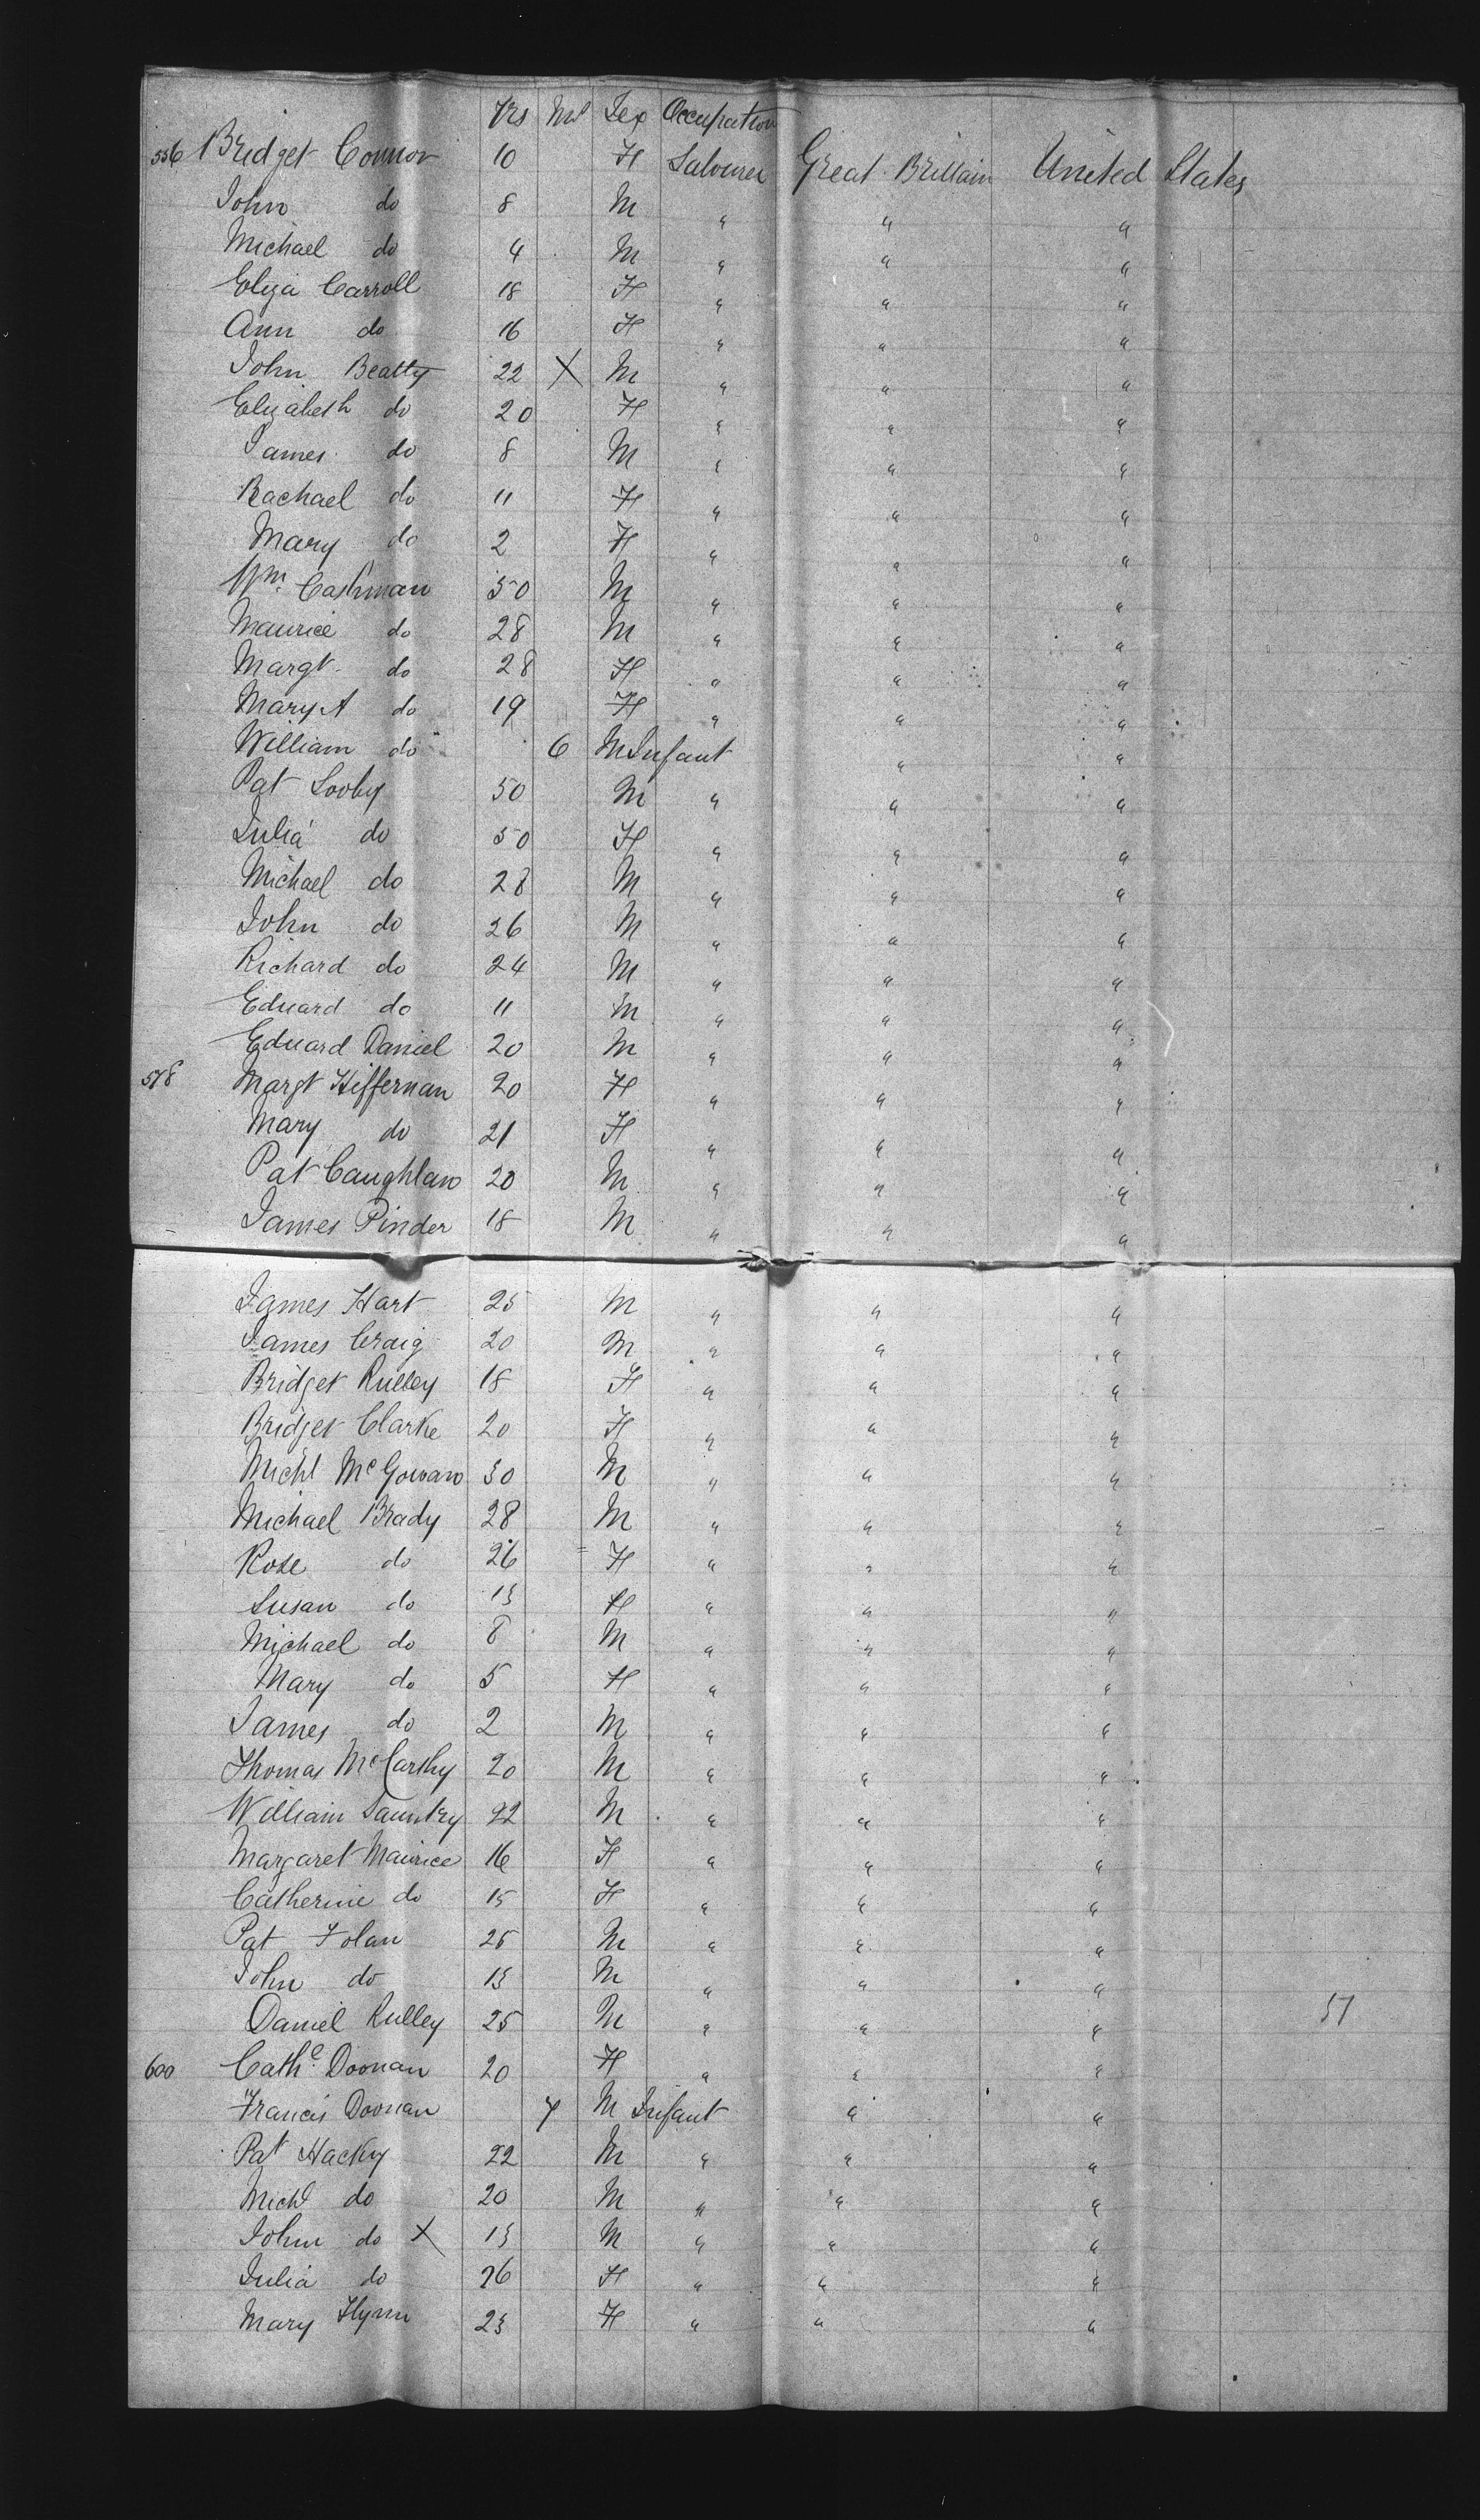 Yrs Ms Sex Occupation
556 Bridget Connor 10 F Labourer Great Brittain United States
John do 8 M " " "
Michael do 4 M " " "
Eliza Carroll 18 F " " "
Ann do 16 F " " "
John Beatty 22 X M " " "
Elizabeth do 20 F " " "
James do 8 M " " "
Rachael do 11 F " " "
Mary do 2 F " " "
Wm. Cashman 50 M " " "
Maurice do 28 M " " "
Margt. do 28 F " " "
Mary A do 19 F " " "
William do 6 M Infant " "
Pat Looby 50 M " " "
Julia do 50 F " " "
Michael do 28 M " " "
John do 26 M " " "
Richard do 24 M " " "
Eduard do 11 M " " "
Eduard Daniel 20 M " " "
578 Margt Hiffernan 20 F " " "
Mary do 21 F " " "
Pat Caughlan 20 M " " "
James Pinder 18 M " " "
James Hart 25 M " " "
James Craig 20 M " " "
Bridget Rulley 18 F " " "
Bridget Clarke 20 F " " "
Michl McGowan 30 M " " "
Michael Brady 28 M " " "
Rose do 26 F " " "
Susan do 13 F " " "
Michael do 8 M " " "
Mary do 5 F " " "
James do 2 M " " "
Thomas McCarthy 20 M " " "
William Sauntry 22 M " " "
Margaret Maurice 16 F " " "
Catherine do 15 F " " "
Pat Folan 25 M " " "
John do 13 M " " "
Daniel Rulley 25 M " " "
57
600 Cathe. Doonan 20 F " " "
Francis Doonan 7 M Infant " "
Pat Hacky 22 M " " "
Michl do 20 M " " "
John do X 13 M " " "
Julia do 26 F " " "
Mary Flynn 23 F " " "